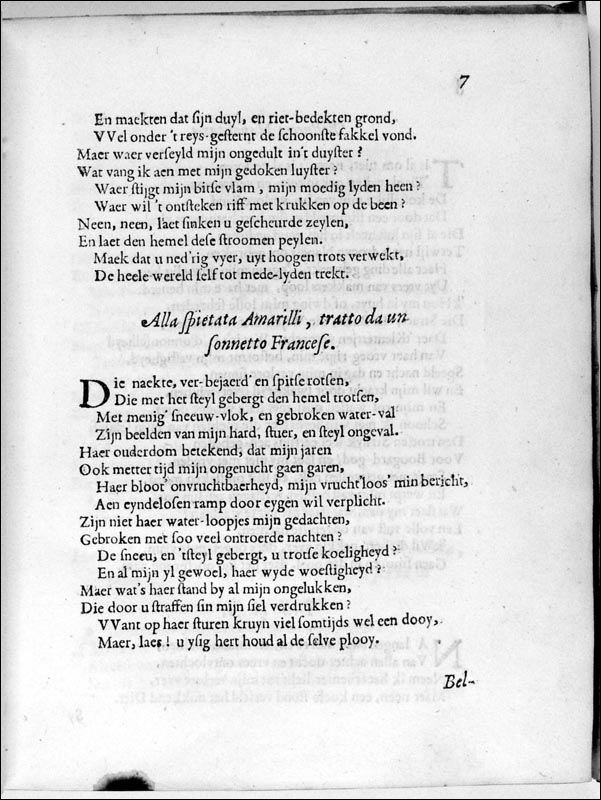 7
En maekten dat sijn duyl, en riet-bedekten grond,
VVel onder 't reys-gesternt de schoonste fakkel vond.
Maer waer verseyld mijn ongedult in't duyster?
Wat vang ik aen met mijn gedoken luyster?
Waer stijgt mijn bitse vlam, mijn moedig lyden heen?
Waer wil 't ontsteken riff met krukken op de been?
Neen, neen, laet sinken u gescheurde zeylen,
En laet den hemel dese stroomen peylen.
Maek dat u ned'rig vyer, uyt hoogen trots verwekt,
De heele wereld self tot mede-lyden trekt.
Alla spietata Amarilli, tratto da un
sonnetto Francese.
Die naekte, ver-bejaerd' en spitse rotsen,
Die met het steyl gebergt den hemel trotsen,
Met menig' sneeuw-vlok, en gebroken water-val
Zijn beelden van mijn hard, stuer, en steyl ongeval.
Haer ouderdom betekend, dat mijn jaren
Ook metter tijd mijn ongenucht gaen garen,
Haer bloot' onvruchtbaerheyd, mijn vrucht'loos' min bericht,
Aen eyndelosen ramp door eygen wil verplicht.
Zijn niet haer water-loopjes mijn gedachten,
Gebroken met soo veel ontroerde nachten?
De sneeu, en 'tsteyl gebergt, u trotse koeligheyd?
En al mijn yl gewoel, haer wyde woestigheyd?
Maer wat's haer stand by al mijn ongelukken,
Die door u straffen sin mijn siel verdrukken?
VVant op haer sturen kruyn viel somtijds wel een dooy,
Maer, laes! u ysig hert houd al de selve plooy.
Bel-